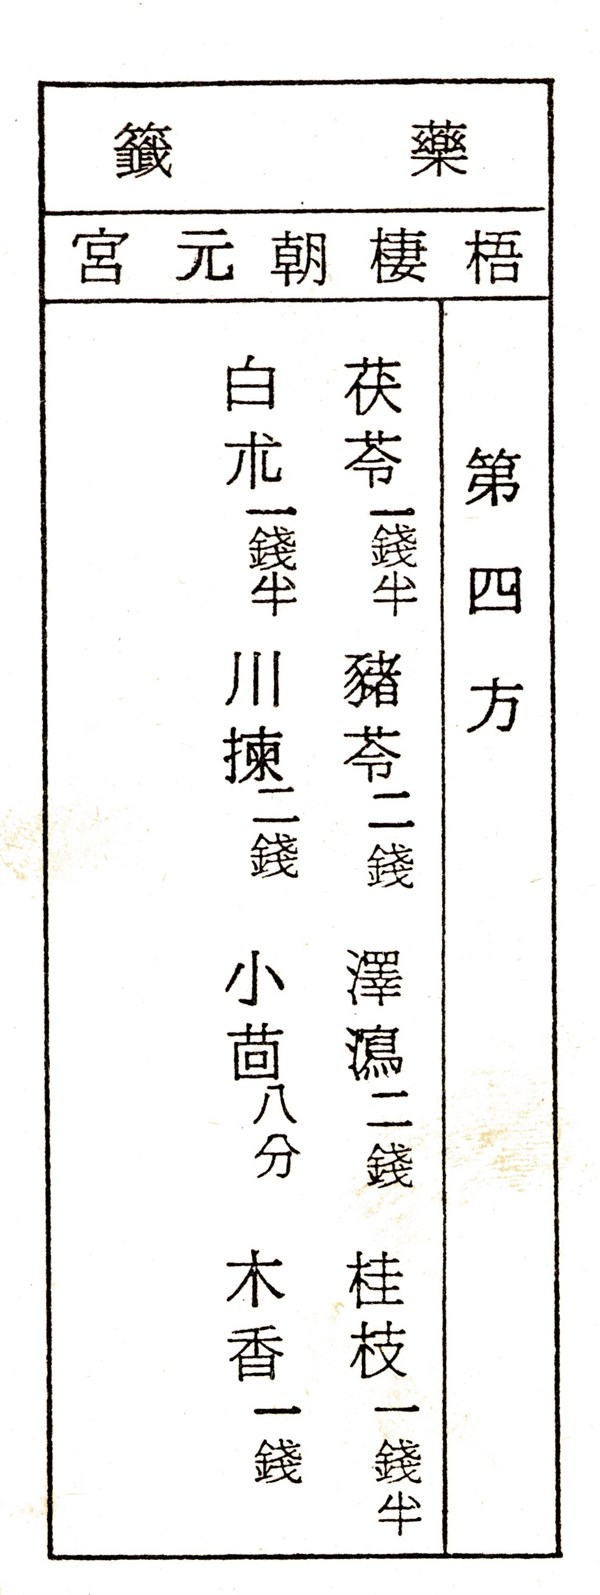 藥籤
梧棲朝元宮
第四方
茯苓一錢半 豬苓二錢 澤瀉二錢 桂枝一錢半
白朮一錢半 川揀二錢 小茴八分 木香一錢